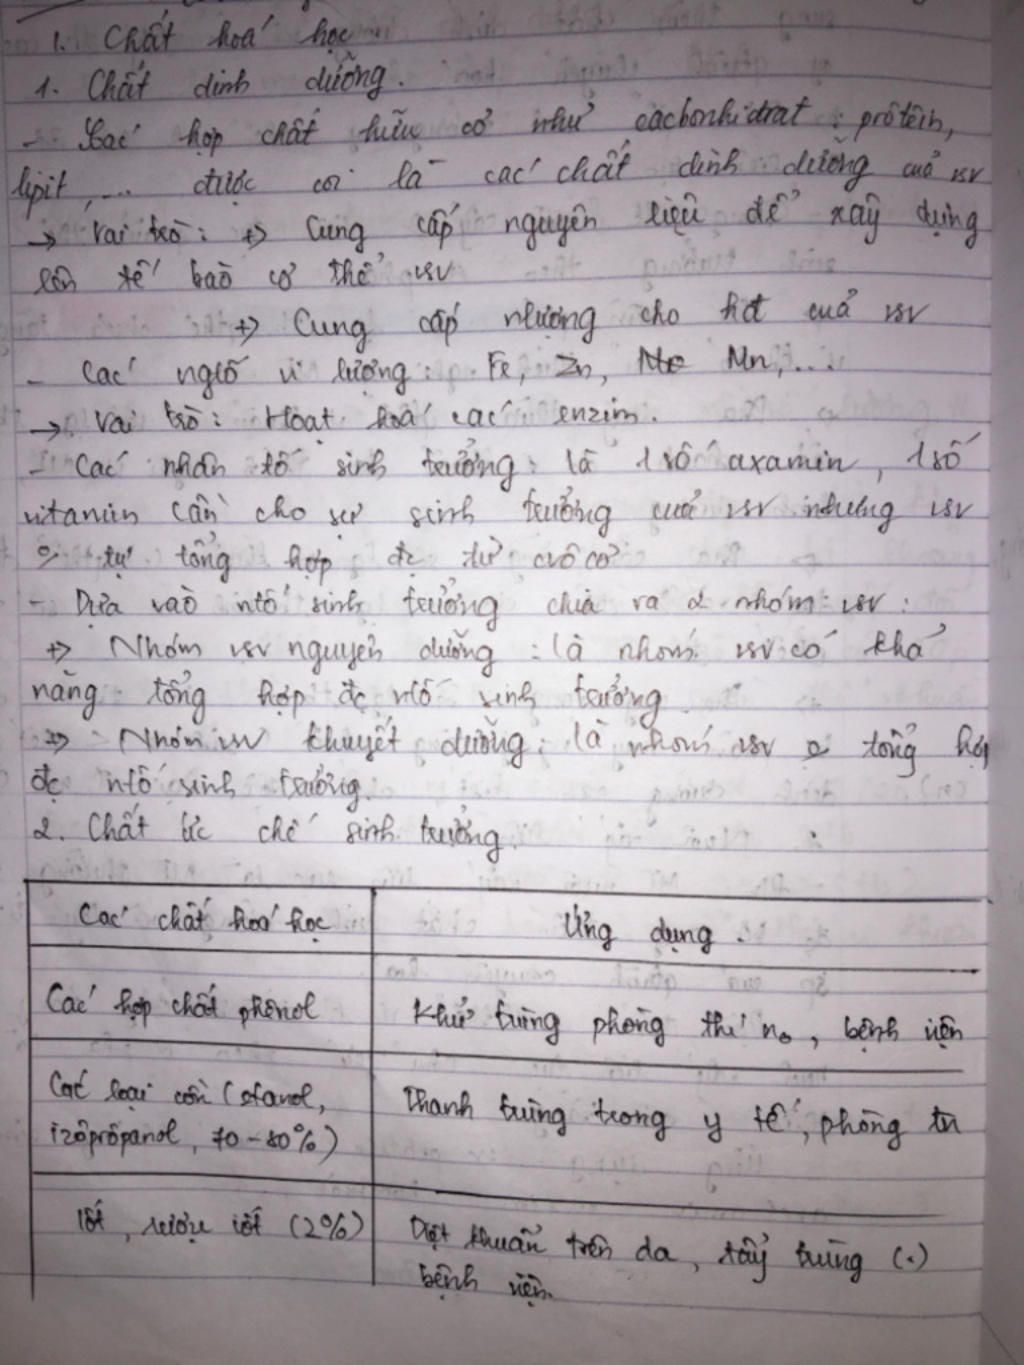 1. Chất hoá học
1. Chất dinh dưỡng.
- Các hợp chất hữu cơ như cácbonhiđrat, prôtêin,
lipit,... được coi là các chất dinh dưỡng của vsv
→ Vai trò: +> Cung cấp nguyên liệu để xây dựng
lên tế bào cơ thể vsv
+> Cung cấp nlượng cho hđ của vsv
- Các ngtố vi lượng: Fe, Zn, Mn,...
→ Vai trò: Hoạt hoá các enzim.
- Các nhân tố sinh trưởng: là 1 số axamin, 1 số
vitamin cần cho sự sinh trưởng của vsv nhưng vsv
o tự tổng hợp đc từ cvôcơ
- Dựa vào ntố sinh trưởng chia ra 2 nhóm vsv:
+> Nhóm vsv nguyên dưỡng: là nhóm vsv có khả
năng tổng hợp đc ntố sinh trưởng
+> Nhóm vsv khuyết dưỡng: là nhóm vsv o tổng hợp
đc ntố sinh trưởng.
2. Chất ức chế sinh trưởng.
Các chất hoá học Ứng dụng.
Các hợp chất phênol Khử trùng phòng thí no, bệnh viện
Các loại cồn (etanol, Thanh trùng trong y tế, phòng tn
izôprôpanol, 70-80%)
Iốt, rượu iốt (2%) Diệt khuẩn trên da, tẩy trùng (.)
bệnh viện.